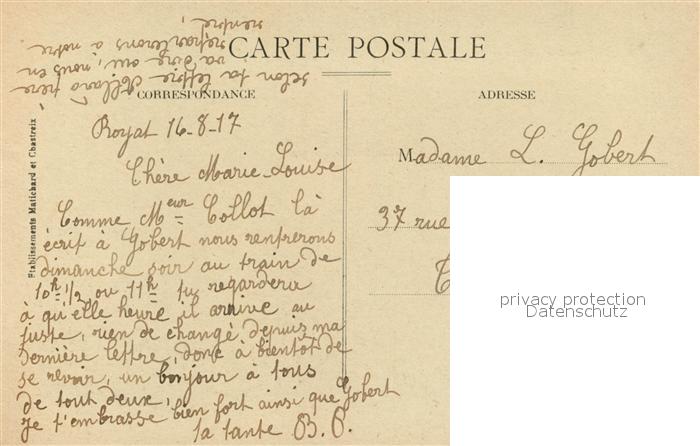 CARTE POSTALE
CORRESPONDANCE
ADRESSE
Etablissements Matichard et Chastreix
Royat 16-8-17
Chère Marie-Louise
Comme Meur Collot l'a
écrit à Gobert nous rentrerons
dimanche soir au train de
10h 1/2 ou 11h tu regardera
à qu'elle heure il arrive au
juste, rien de changé depuis ma
dernière lettre, donc à bientôt de
se revoir, un bonjour à tous
de tout deux,
je t'embrasse bien fort ainsi que Gobert
ta tante B. C.
selon ta lettre Collard père
va dire oui, nous en
reparlerons à notre
rentré,
Madame L. Gobert
37 rue
privacy protection
Datenschutz